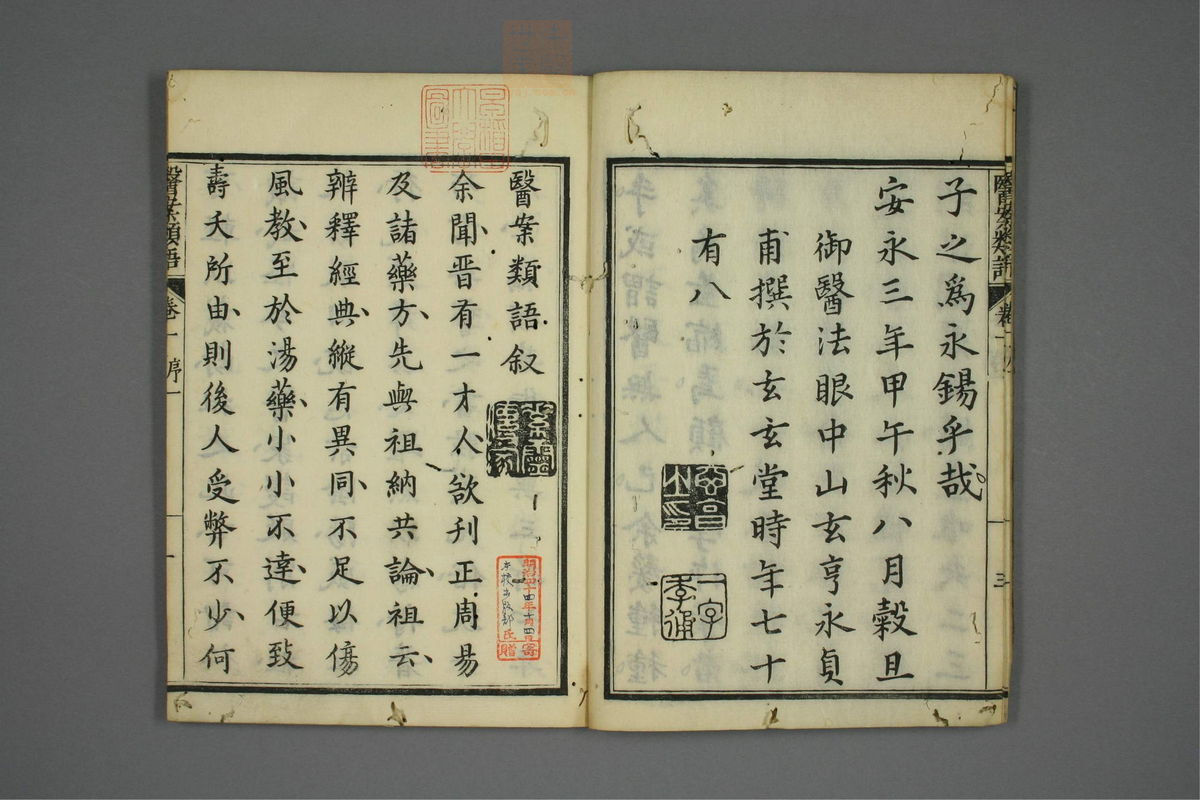 子之爲永錫乎哉
安永三年甲午秋八月穀旦
御醫法眼中山玄亨永貞
甫撰於玄玄堂時年七十
有八
醫案類語
三
醫案類語叙
余聞晋有一才人欲刋正周易
及諸藥方先與祖納共論祖云
辨釋經典縱有異同不足以傷
風教至於湯藥小小不達便致
壽夭所由則後人受弊不少何
醫案類語
卷一
序一
明治四十四年
寄贈